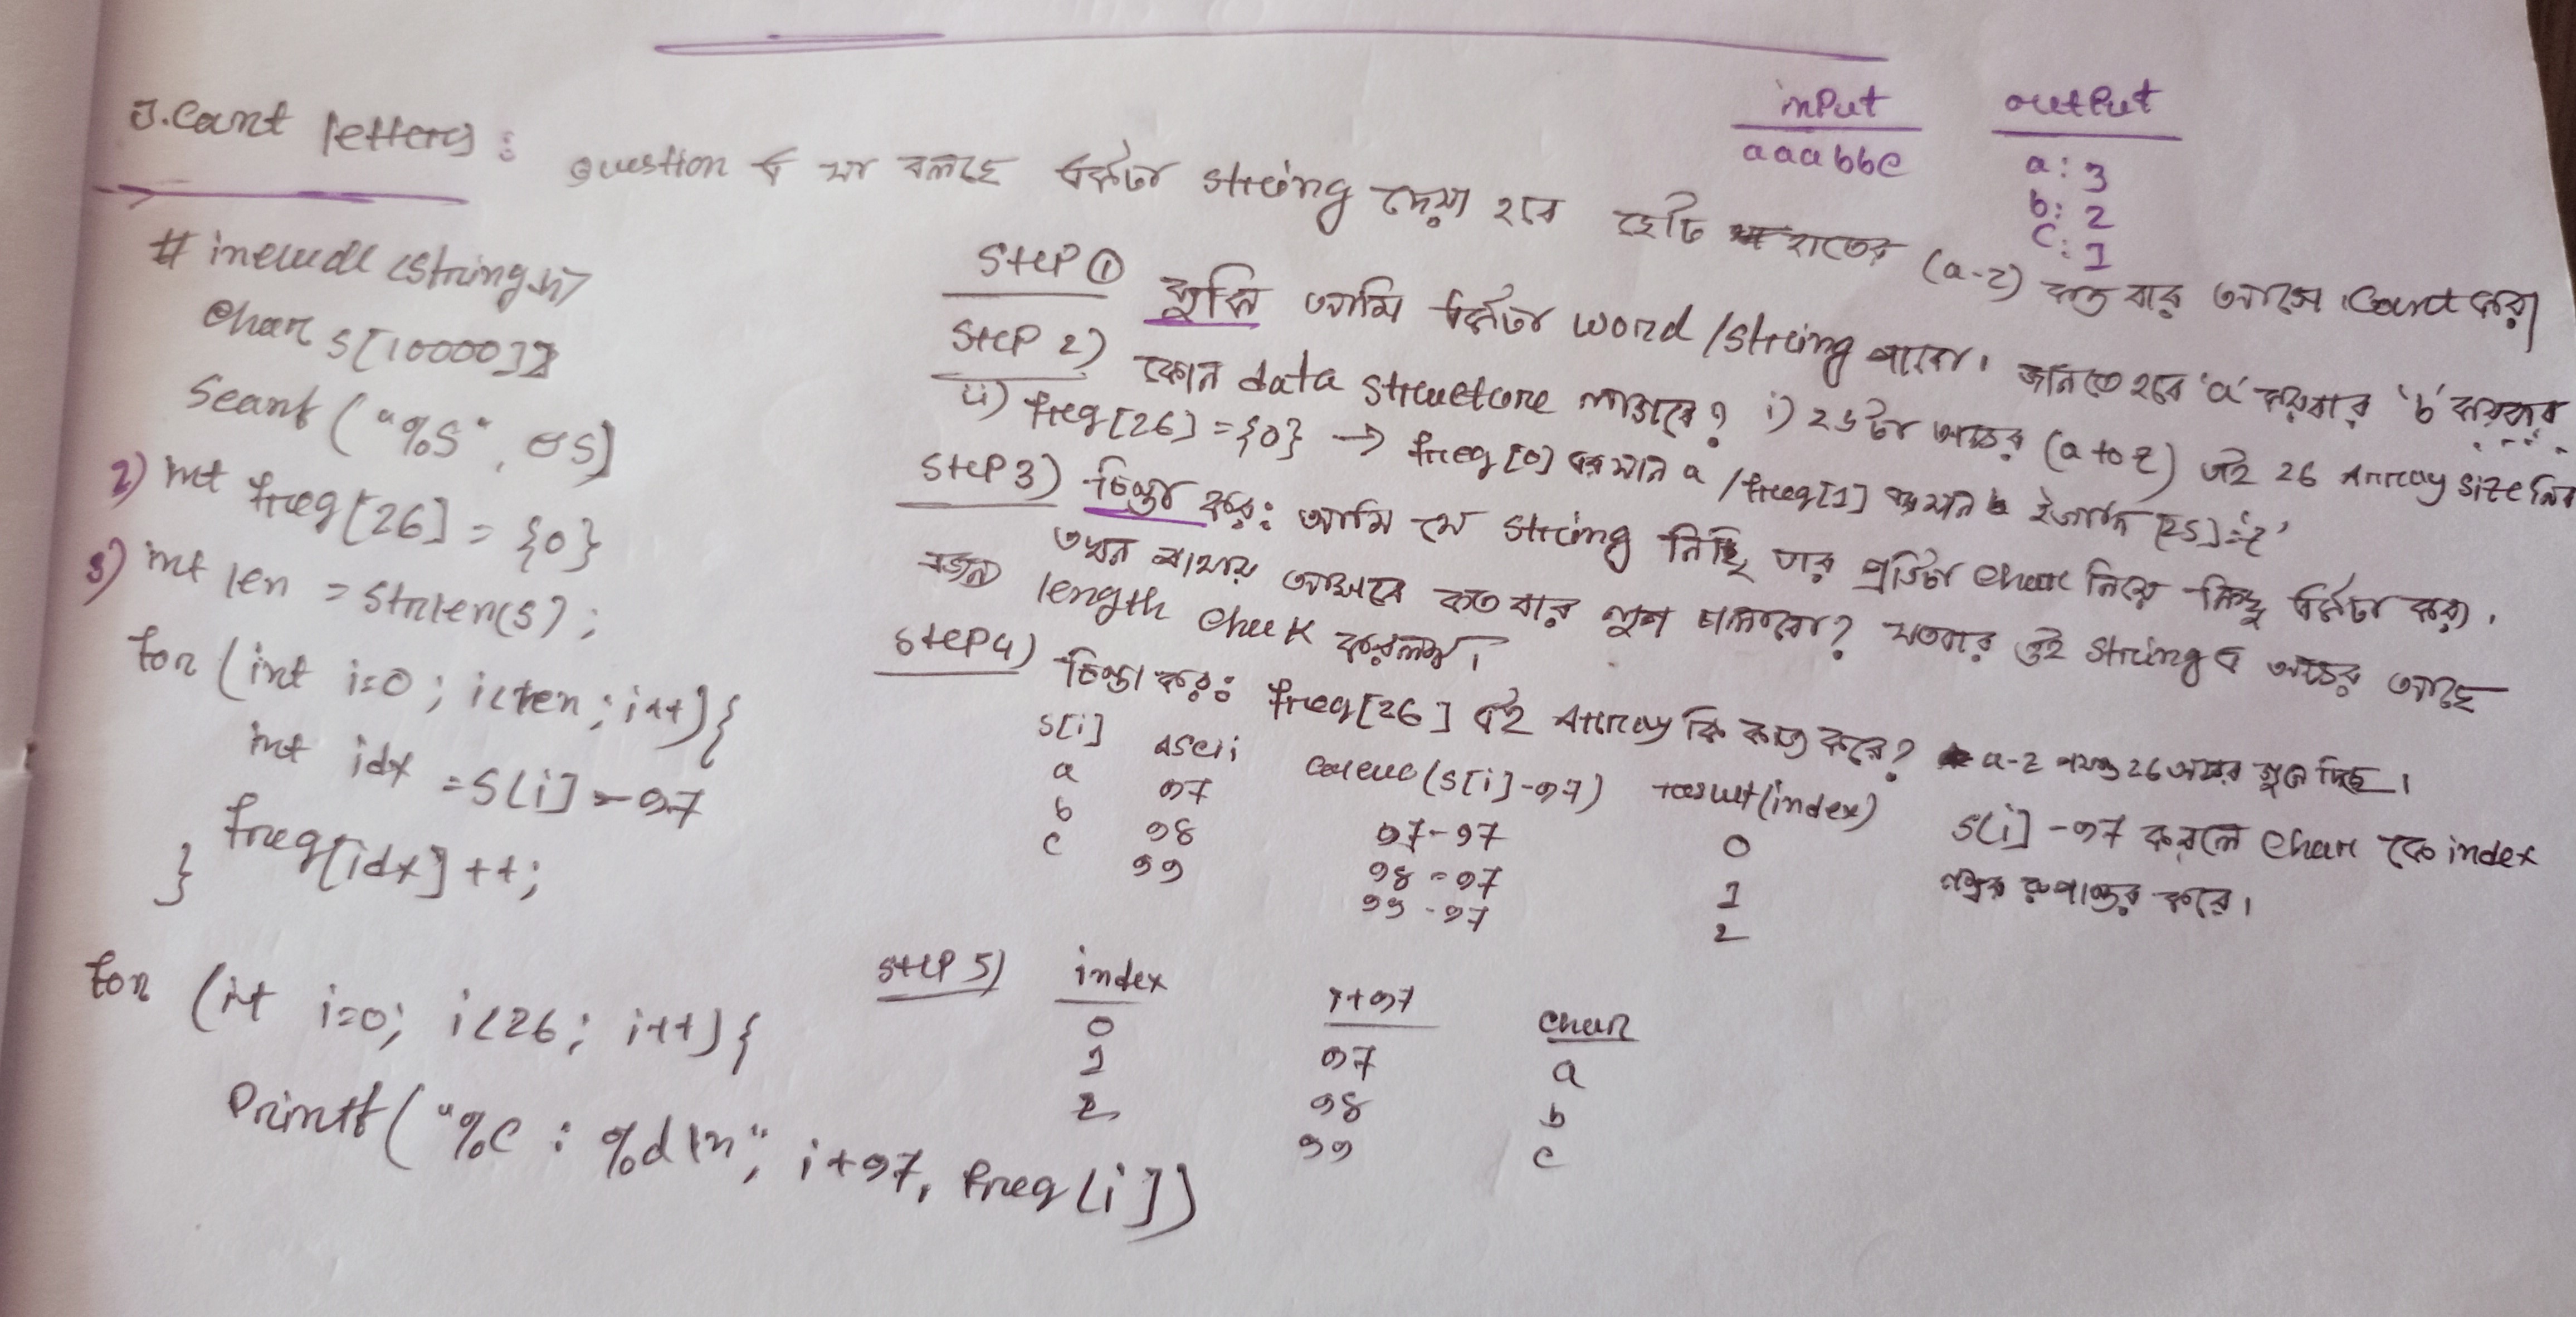 J. Count letters:
question এ যা বলছে একটা string দেয়া হবে ছোট হাতের (a-z) কত বার আসে count করো
input output
aaabbc
a: 3
b: 2
c: 1
# include <string.h>
char s[10000];
scanf ("%s", &s]
2) int freq[26] = {0}
3) int len = strlen(s);
for (int i=0; i<len; i++){
int idx = s[i] - 97
freq[idx]++;
}
for (int i=0; i<26; i++){
printf("%c : %d\n", i+97, freq[i])
Step ① বুঝি আমি একটা word/string পাবো। জানতে হবে 'a' কয়বার 'b' কয়বার
Step 2) কোন data structure লাগবে? i) 26টা অক্ষর (a to z) তাই 26 Array size নিব
ii) freq[26]={0} → freq[0] এর মান a /freq[1] এর মান b ইত্যাদি [25]='z'
Step 3) চিন্তা করো: আমি যে string নিছি তার প্রতিটা char নিয়ে কিছু একটা করো।
তখন মাথায় আসবে কত বার লুপ চালাবো? যতবার ওই string এ অক্ষর আছে
এজন্য length check করলাম।
Step 4) চিন্তা করো: freq[26] এই Array কি কাজ করে? a-z পযন্ত 26 অক্ষর গুনে দিছে।
s[i] ascii calcuc(s[i]-97) result(index)
a 97 97-97 0
b 98 98-97 1
c 99 99-97 2
s[i]-97 করলে char কে index
নম্বর রুপান্তর করে।
Step 5) index i+97 char
0 97 a
1 98 b
2 99 c